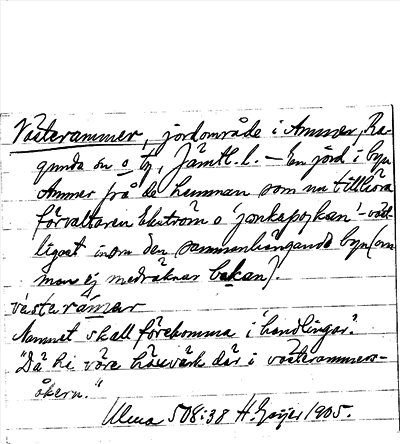 Västerammer, jordområde i Ammer, Ra-
gunda sn o tg, Jämtl. l. – En jord i byn
Ammer från de hemman som nu tillhöra
förvaltaren Ekström o 'jonkapojkan' – väst-
ligast inom den sammanhängande byn (om
man ej medräknar bakan).
västerámer
Namnet skall förekomma i handlingar.
"Då hi vöre håsvärk där i västerammers-
åkern."
Ulma 508:38 H. Geijer 1905.